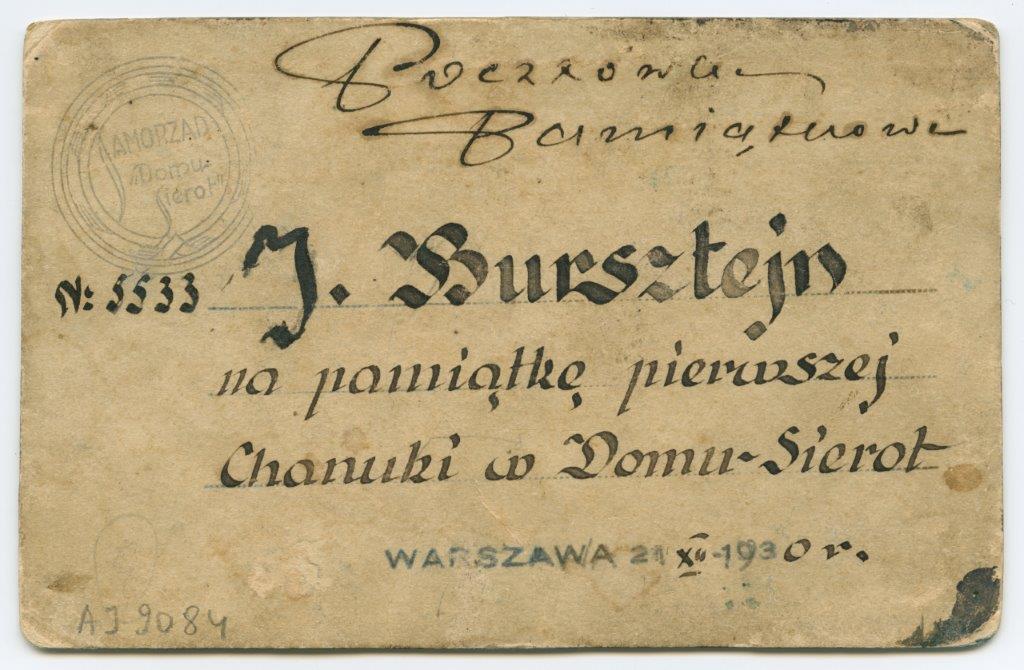 Pocztówka
Pamiątkowa
SAMORZĄD
„Domu
Sierot”
№: 5533 J. Bursztejn
na pamiątkę pierwszej
Chanuki w Domu-Sierot
WARSZAWA 21 XII-1930 r.
AJ 9084